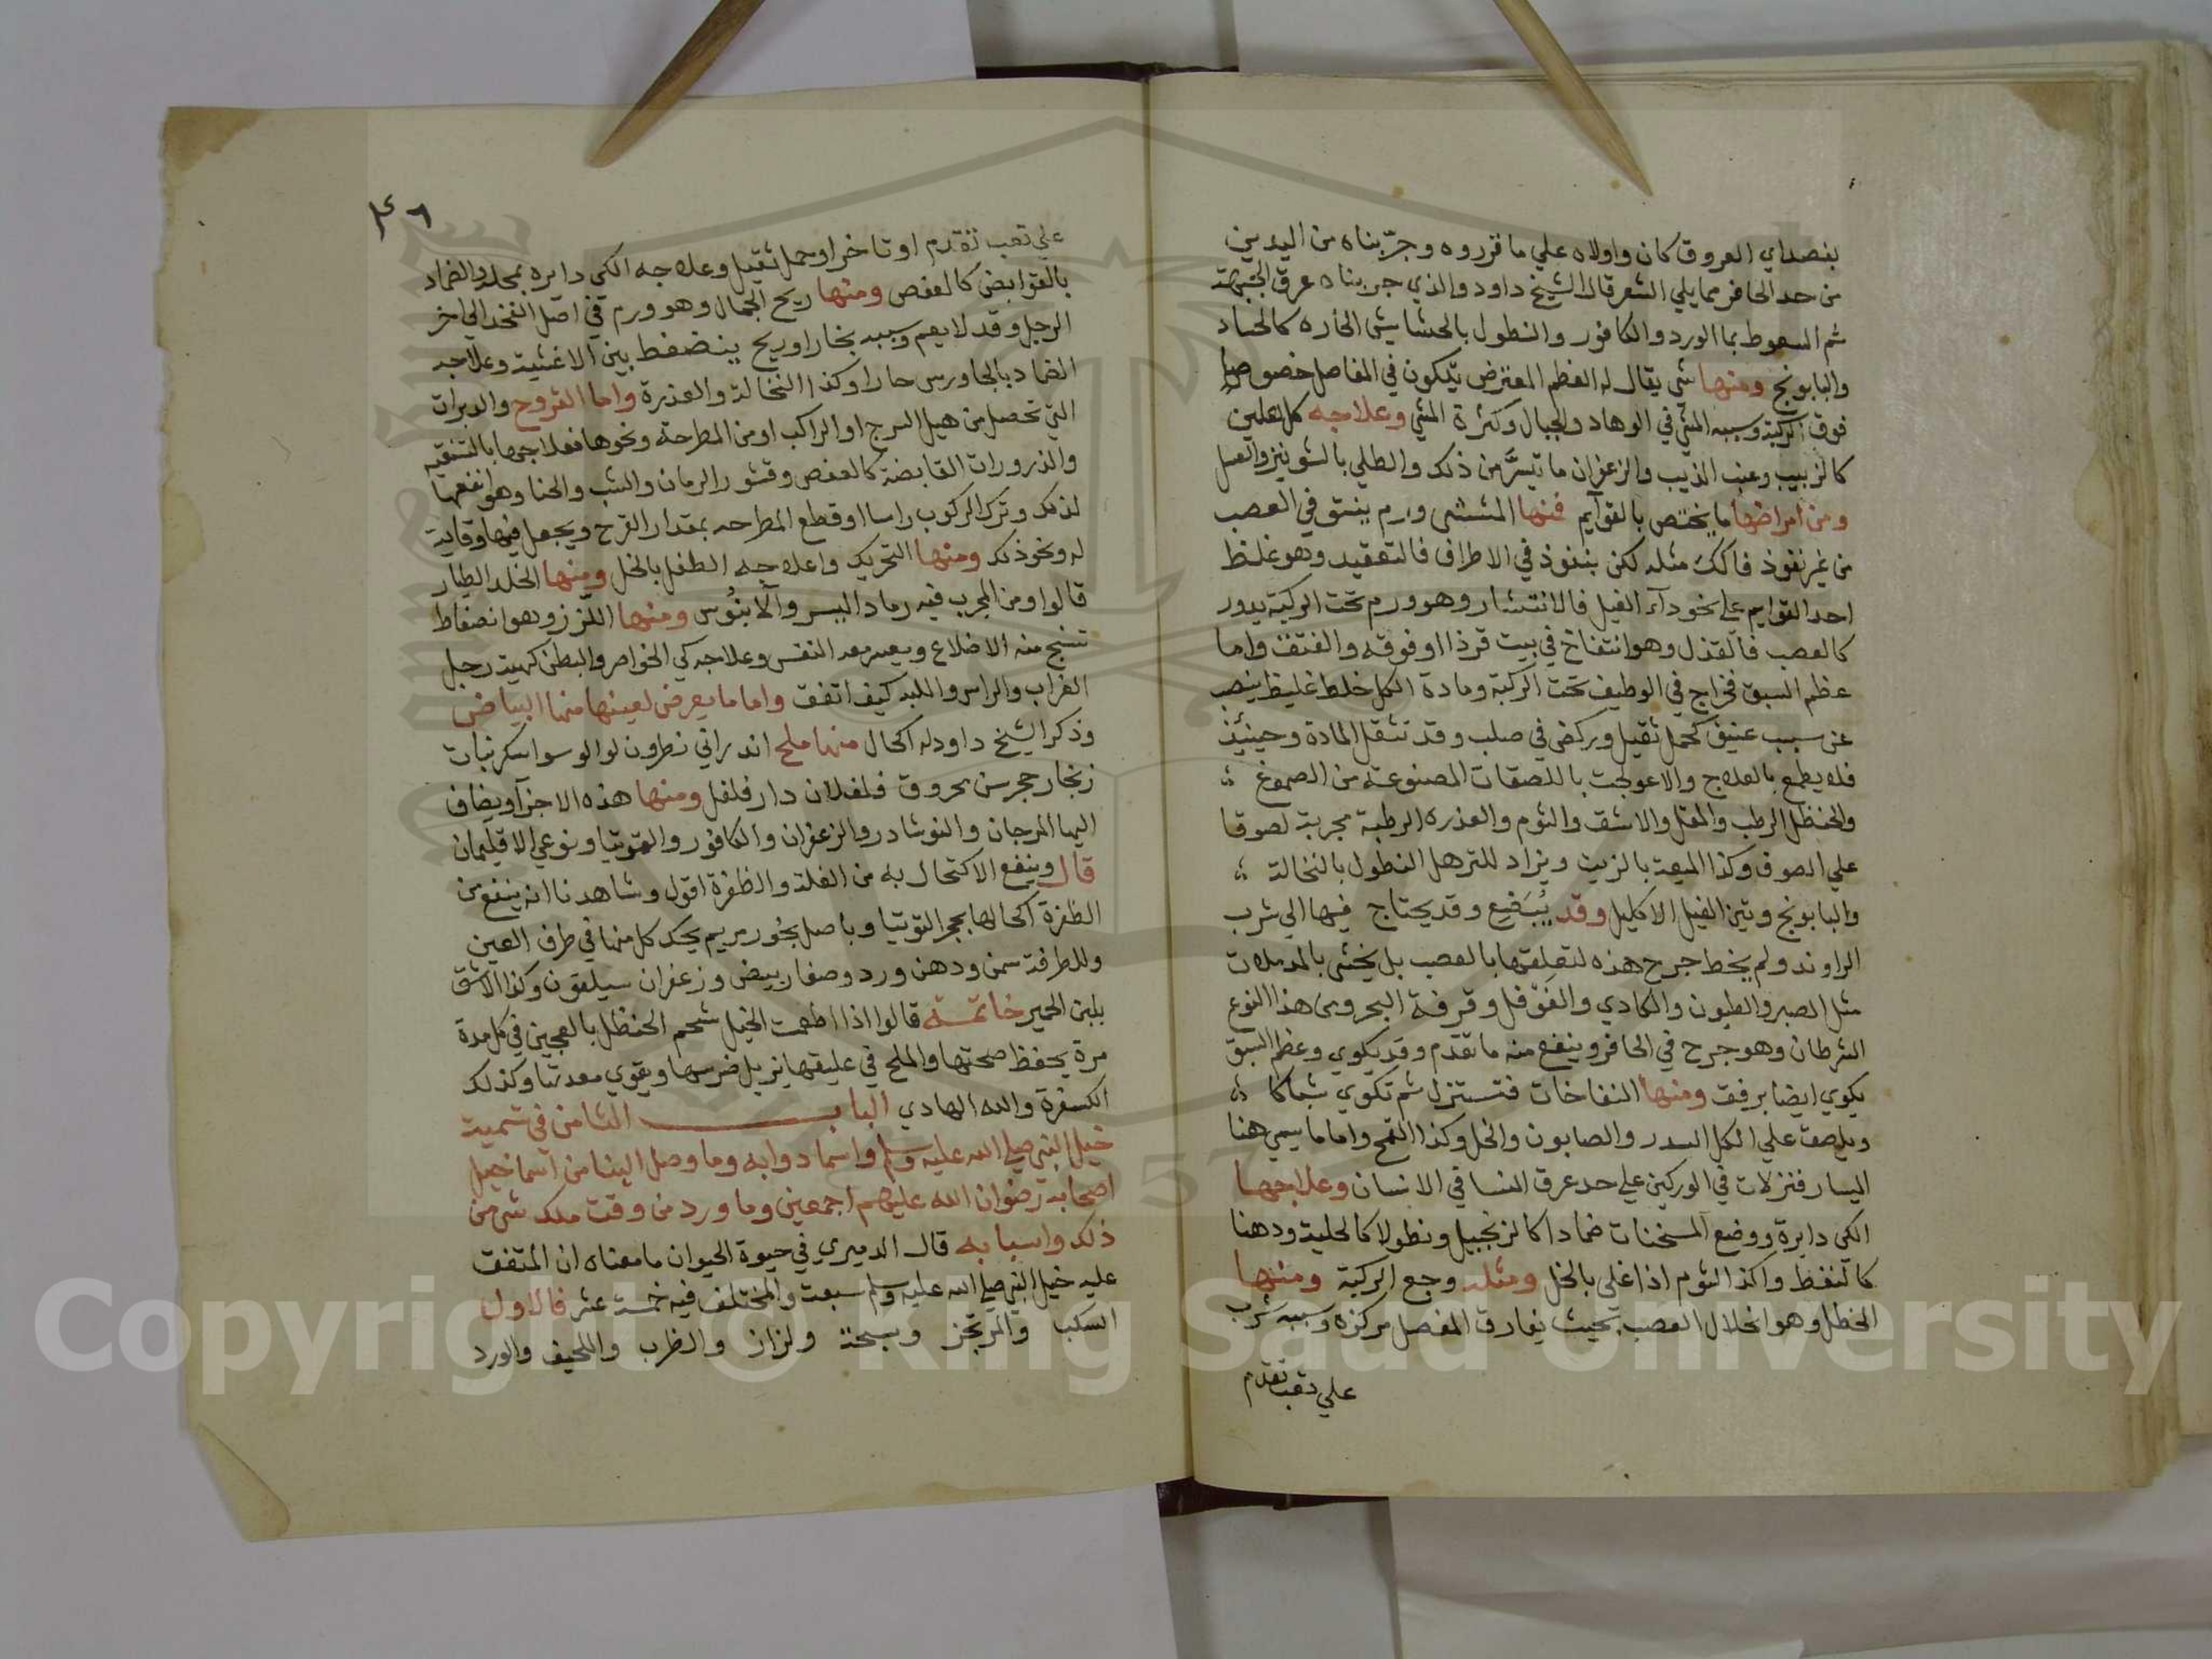 بفصد اي العروق كان واولاه علي ما قرروه وجربناه من اليدين
من حد الحافر مما يلي الشعر قال الشيخ داود والذي جربناه عرق الجبهة
ثم السعوط بما الورد والكافور والنطول بالحشايش الحاره كالحباد
والبابونج ومنها شي يقال له العظم المعترض يتكون في المفاصل خصوصا
فوق الركبة وسببه المشي في الوهاد والجبال وكثرة المشي وعلاجه كل ملين
كالزبيب وعنب الذيب والزعفران ما تيسر من ذلك والطلي بالشونيز والعسل
ومن امراضها ما يختص بالقوآيم فمنها المشش ورم ينشق في العصب
من غير نفوذ فالكك مثله لكن بنفوذ في الاطراف فالتعقيد وهو غلظ
احد القوايم علي نحو دآء الفيل فالانتشار وهو ورم تحت الركبة يدور
كالعصب فالقذل وهو انتفاخ في بيت قرذا او فوقه والفتق واما
عظم السبق فخراج في الوظيف تحت الركبة ومادة الكل خلط غليظ ينصب
عن سبب عنيق كحمل ثقيل وركض في صلب وقد تنتقل المادة وحينئذ
فلا يطمع بالعلاج والا عولجت باللصقات المصنوعة من الصموغ
والحنظل الرطب والمقل والاشق والثوم والعذره الرطبة مجربة لصوقا
علي الصوف وكذا الميعة بالزيت ويزاد للترهل النطول بالنخالة
والبابونج وتين الفيل الاكليل وقد يبضع وقد يحتاج فيها الي شرب
الراوند ولم يخط جرح هذه لتعلقها بالعصب بل يحشى بالمدملات
مثل الصبر والطيون والكادي والفوفل وقرفة البحر ومن هذا النوع
السرطان وهو جرح في الحافر وينفع منه ما تقدم وقد يكوي وعظم السبق
يكوي ايضا برفق ومنها النفاخات فتستنزل ثم تكوي شباكا
ويلصق علي الكل السدر والصابون والخل وكذا القمح واما ما يسمى هنا
اليسار فنزلات في الوركين علي حد عرق النسا في الانسان وعلاجها
الكي دايرة ووضع المسخنات ضمادا كالزنجبيل ونطولا كالحلبة ودهنا
كالنفط وكذا الثوم اذا غلي بالخل ومثله وجع الركبة ومنها
الخطل وهو انحلال العصب بحيث يفارق المفصل مركزه وسببه شرب
علي تعب تقدم
٤٦
علي تعب تقدم او تاخر او حمل ثقيل وعلاجه الكي دايره بمحله والضماد
بالقوابض كالعفص ومنها ريح الجمال وهو ورم في اصل الفخذ الي اخر
الرجل وقد لا يعم وسببه بخار او ريح ينضغط بين الاغشية وعلاجه
الضماد بالجاورس حارا وكذا النخالة والعذرة واما القروح والدبرات
التي تحصل من هيل السرج او الراكب او من المطرحة ونحوها فعلاجها بالتنقيه
والذرورات القابضة كالعفص وقشور الرمان والشب والحنا وهو انفعها
لذلك وترك الركوب راسا او قطع المطرحه بمقدار القرح ويجعل فيها وقاية
له ونحو ذلك ومنها التحريك وعلاجه الطفل بالخل ومنها الخلد الطيار
قالوا ومن المجرب فيه رماد اليسر والابنوس ومنها اللزز وهو انضغاط
تشنج منه الاضلاع ويعسر معه النفس وعلاجه كي الخواصر والبطن كهية رجل
الغراب والراس واللبه كيف اتفقت واما ما يعرض لعينها منها البياض
وذكر الشيخ داود له اكحال منها ملح اندراني نطرون لوالو سوا سكر نبات
زنجار حجر سن محروق فلفلان دار فلفل ومنها هذه الاجزآ ويضاف
اليها المرجان والنوشادر والزعفران والكافور والتوتيا ونوعي الاقليمان
قال وينفع الاكتحال به من الغلة والظفرة اقول وشاهدنا انه ينفع من
الظفرة اكحالها بحجر التوتيا وباصل بخور مريم يحك كل منها في طرف العين
وللطرفة سمن ودهن ورد وصفار بيض وزعفران سيلقون وكذا الاشق
بلبن الحمير خاتمة قالوا اذا اطعمت الخيل شحم الحنظل بالعجين في كل مدة
مرة يحفظ صحتها والملح في عليقها يزيل ضرسها ويقوي معدتها وكذلك
الكسفرة والله الهادي الباب الثامن في تسمية
خيل النبي صلى الله عليه وسلم واسما دوابه وما وصل الينا من اسما خيل
اصحابه رضوان الله عليهم اجمعين وما ورد من وقت ملك شي من
ذلك واسبابه قال الدميري في حيوة الحيوان ما معناه ان المتفق
عليه خيل النبي صلى الله عليه وسلم سبعة والمختلف فيه خمسة عشر فالاول
السكب والمرتجز وسبحة ولزاز والظرب واللحيف والورد
Copyright © King Saud University